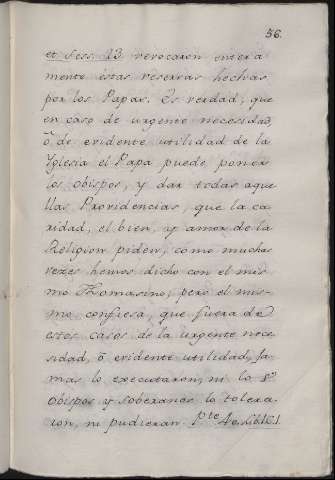 56.
et Sess. 23 revocaron entera
mente estas reservas hechas
por los Papas. Es verdad, que
en caso de urgente necesidad,
ò de evidente utilidad de la
Yglesia el Papa puede poner
los obispos, y dar todas aque
llas Providencias, que la ca
ridad, el bien, y amor de la
Religion piden, como muchas
vezes hemos dicho con el mis
mo Thomasino; pero el mis-
mo confiesa, que fuera de
estos casos de la urgente nece
sidad, ò evidente utilidad, ja
mas lo executaron, ni lo
Obispos y soberanos lo tolera
ron, ni pudieran. Pte 4